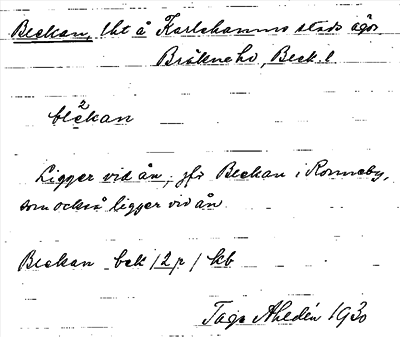 Beckan, lht å Karlshamns stads ägor
Bräkne hd, Blek. l.
2
bleckan
Ligger vid ån, jfr Beckan i Ronneby,
som också ligger vid ån
Beckan bek / 2 p / kb
Tage Ahldén 1930